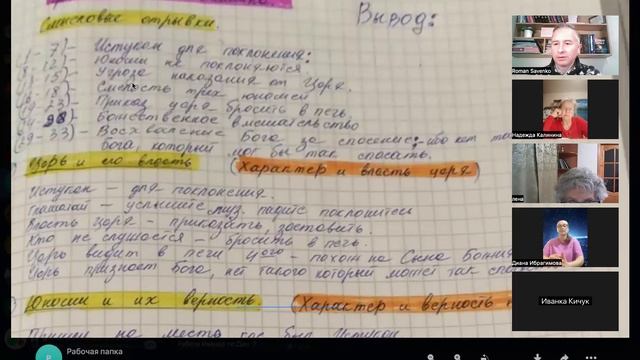 Смысловые отрывки.
Вывод:
1-7) - Истукан для поклонения:
8-12) - Юноши не поклоняются
-15) - Угроза наказания от Царя.
-18) - Смелость трёх юношей
-23) - Приказ царя бросить в печь.
-28) - Божественное вмешательство
29-33) - Восхваление Бога за спасение: ибо нет
бога, который мог бы так спасать.
Царь и его власть
(Характер и власть царя)
Истукан - для поклонения.
Глашатай - услышите муз. падите поклонитесь
Власть Царя - приказать, заставить.
Кто не слушается - бросить в печь.
Царь видит в печи 4го - похож на Сына Божия
Царь признает Бога, нет такого который может так
Юноши и их верность
(Характер и верность
на место где был Истукан
Roman Savenko
Надежда Калинина
лена
Диана Ибрагимова
Иванка Кичук
Р
Рабочая папка